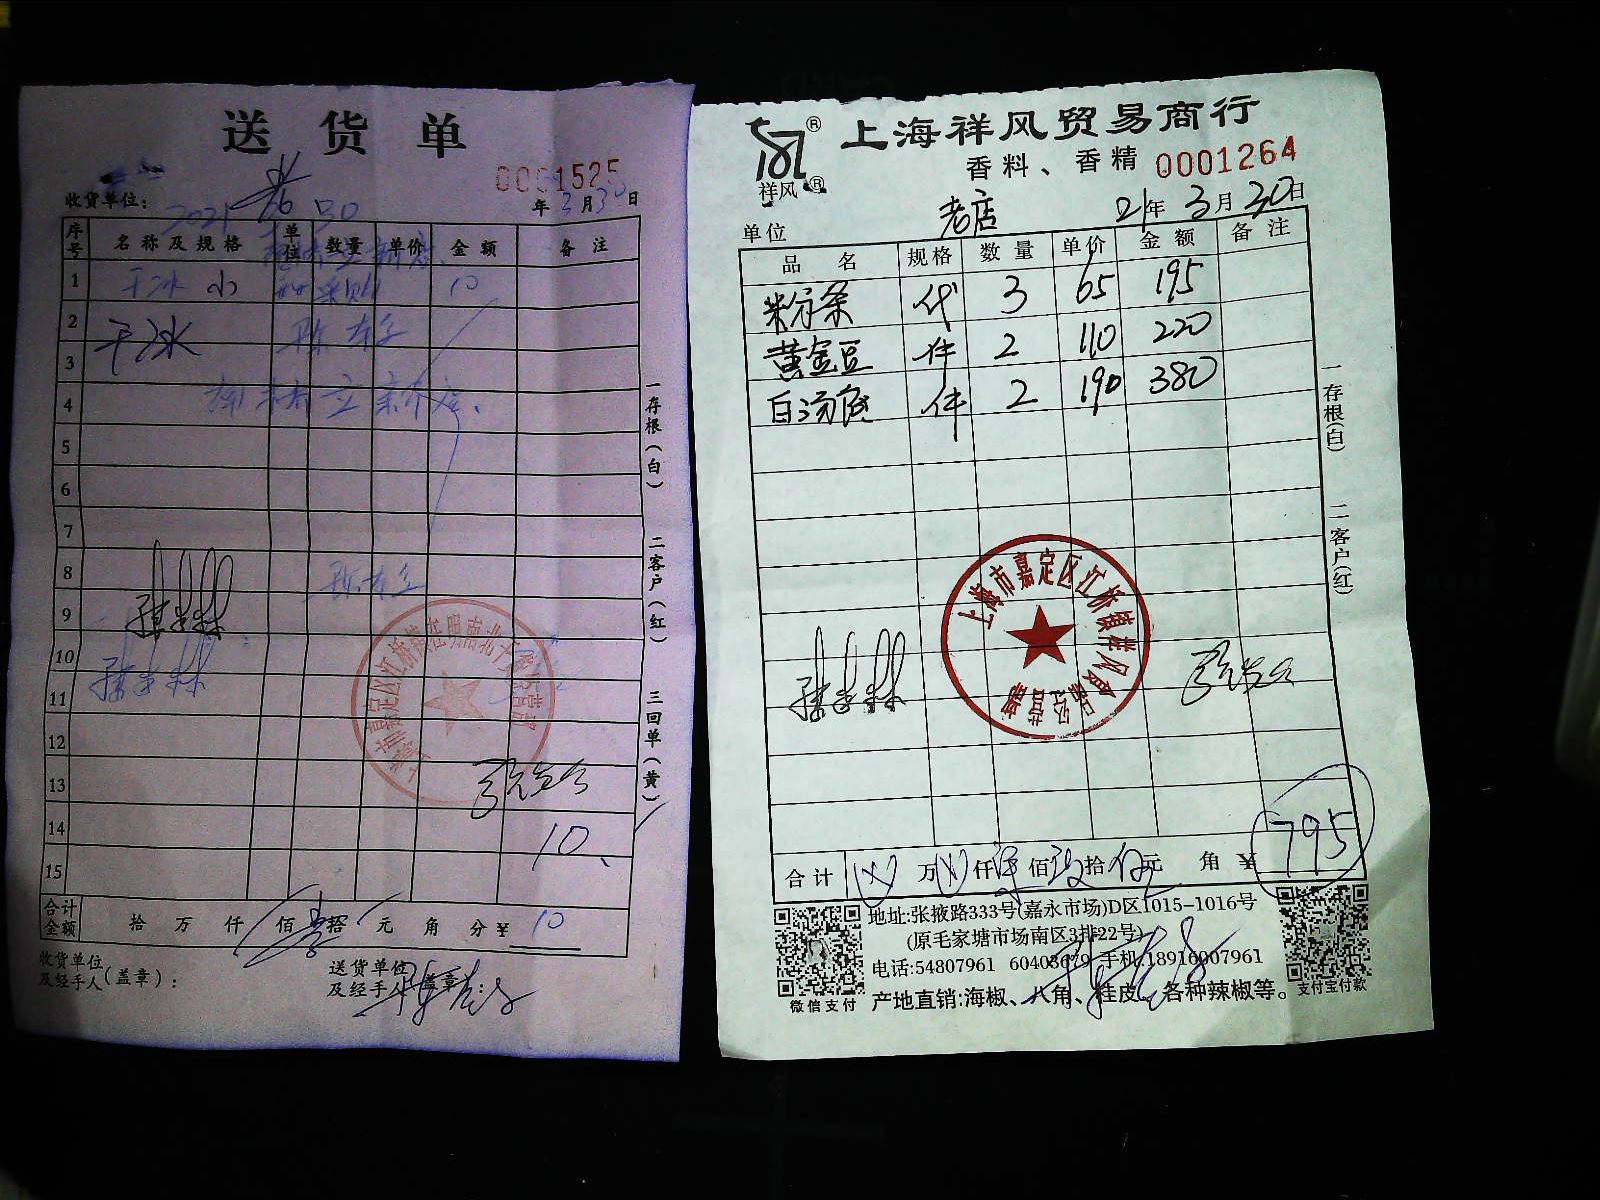 送货单
0001525
收货单位:
年3月30日
序号 名称及规格 单位 数量 单价 金额 备注
1 干冰 小 10
2
干冰
3
4
5
6
7
8
9
10
11
12
13
14 10
15
合计金额 拾 万 仟 佰 壹拾 元 角 分 ¥ 10
收货单位及经手人(盖章):
送货单位及经手人(盖章):
一存根(白) 二客户(红) 三回单(黄)
祥风
上海祥风贸易商行
香料、香精 0001264
单位 老店 21年3月30日
品名 规格 数量 单价 金额 备注
粉条 代 3 65 195
黄金豆 件 2 110 220
白汤底 件 2 190 380
795
合计 万 仟 佰 拾 元 角 ¥
地址:张掖路333号(嘉永市场)D区1015-1016号
(原毛家塘市场南区3排22号)
电话:54807961 60403679 手机:18916007961
产地直销:海椒、八角、桂皮、各种辣椒等。
微信支付
支付宝付款
一存根(白) 二客户(红)